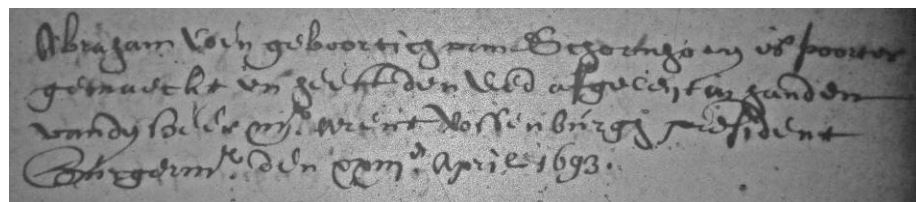 Abraham Coen geboortich van Schoenhoven is poorter
gemaeckt en heeft den eed afgeleyt in handen
vandy heer Mr. Arent Vossenburgh president
Burgermr. den xxiii en April 1693.